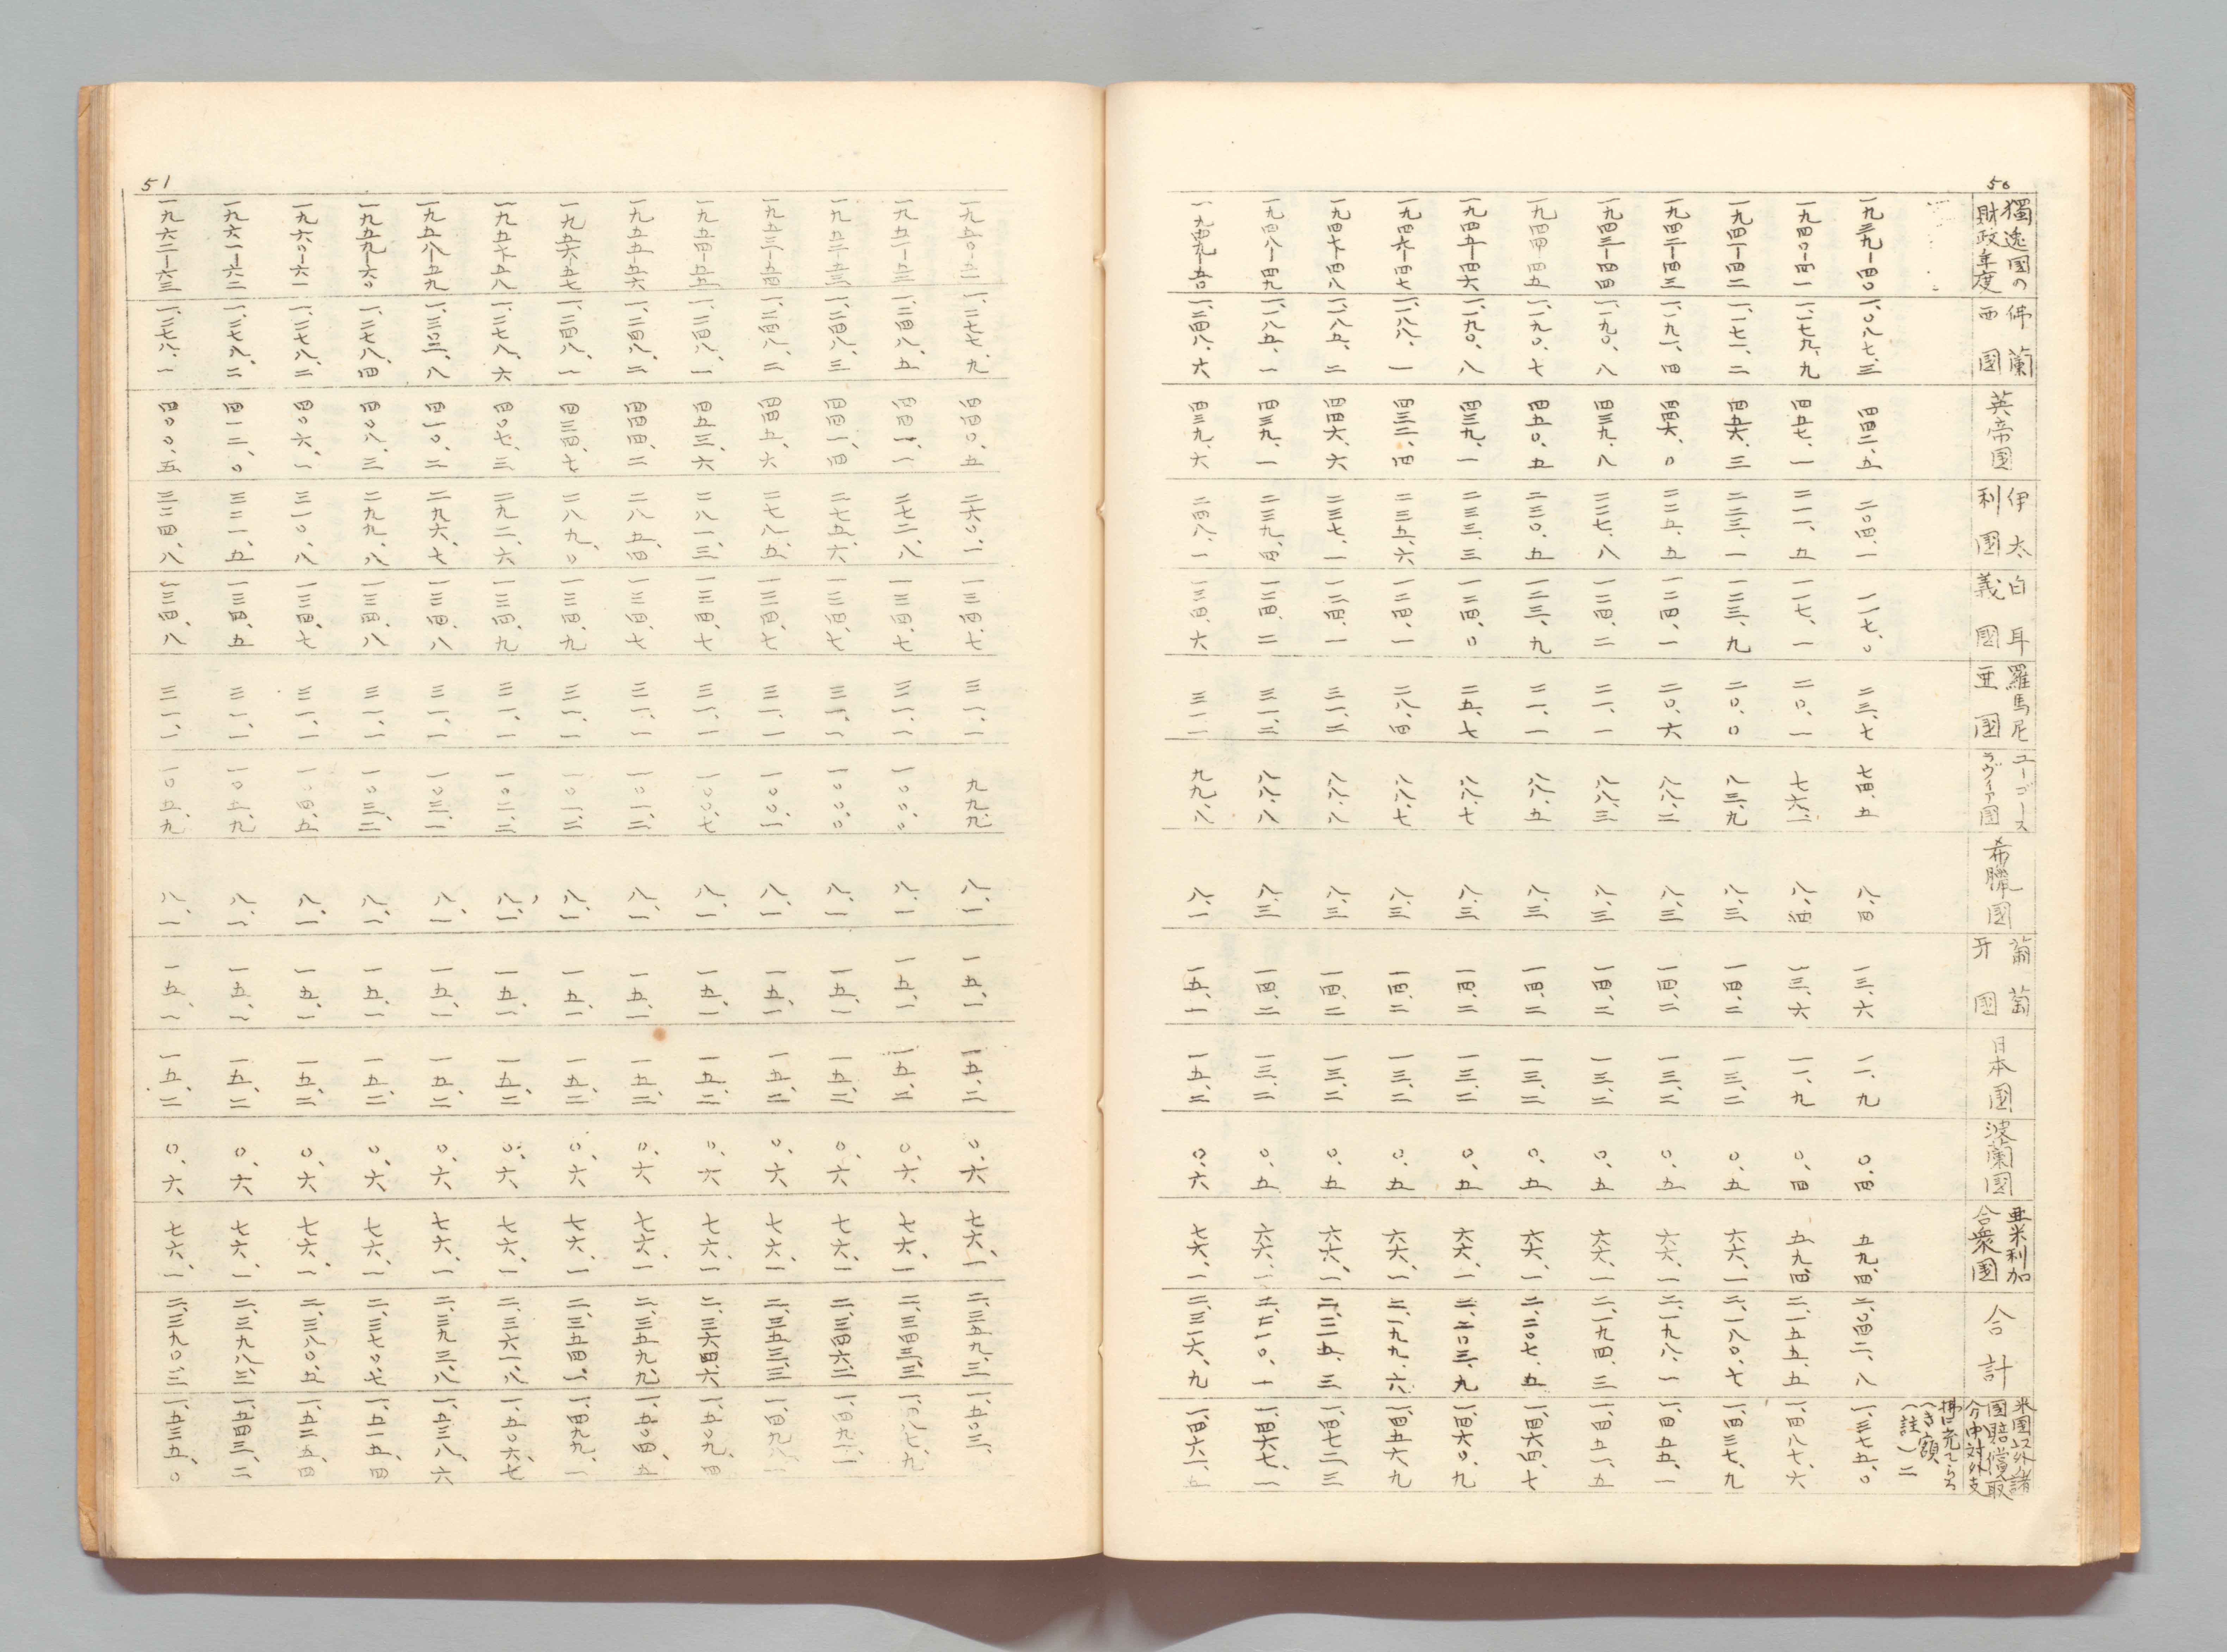 50
獨逸國の財政年度 佛蘭西國 英帝國 伊太利國 白耳義國 羅馬尼亜國 ユーゴースラヴィア國 希臘國 葡萄牙國 日本國 波蘭國 亜米利加合衆國 合計 米国以外諸國賠償受取分中対外支拂に充てらるへき額(註)二
一九三九―四〇 一、〇八七、三 四四二、五 二〇四、一 一一七、〇 二三、七 七四、五 八、四 一三、六 一一、九 〇、四 五九、四 二、〇四二、八 一、三七五、〇
一九四〇―四一 一、一七九、九 四五七、一 二一一、五 一一七、一 二〇、一 七六、二 八、四 一三、六 一一、九 〇、四 五九、四 二、一五五、五 一、四八七、六
一九四一―四二 一、一七一、二 四五六、三 二二三、一 一二三、九 二〇、〇 八三、九 八、三 一四、二 一三、二 〇、五 六六、一 二、一八〇、七 一、四三七、九
一九四二―四三 一、一九一、四 四四六、〇 二二五、五 一二四、一 二〇、六 八八、二 八、三 一四、二 一三、二 〇、五 六六、一 二、一九八、一 一、四五五、一
一九四三―四四 一、一九〇、八 四三九、八 二二七、八 一二四、二 二一、一 八八、三 八、三 一四、二 一三、二 〇、五 六六、一 二、一九四、三 一、四五一、五
一九四四―四五 一、一九〇、七 四五〇、五 二三〇、五 一二三、九 二一、一 八八、五 八、三 一四、二 一三、二 〇、五 六六、一 二、二〇七、五 一、四六四、七
一九四五―四六 一、一九〇、八 四三九、一 二三三、三 一二四、〇 二五、七 八八、七 八、三 一四、二 一三、二 〇、五 六六、一 二、二〇三、九 一、四六〇、九
一九四六―四七 一、一八八、一 四三二、四 二三五、六 一二四、一 二八、四 八八、七 八、三 一四、二 一三、二 〇、五 六六、一 二、一九九、六 一、四五六、九
一九四七―四八 一、一八五、二 四四六、六 二三七、一 一二四、一 三一、二 八八、八 八、三 一四、二 一三、二 〇、五 六六、一 二、二一五、三 一、四七二、三
一九四八―四九 一、一八五、一 四三九、一 二三九、四 一二四、二 三一、二 八八、八 八、三 一四、二 一三、二 〇、五 六六、一 二、二一〇、一 一、四六七、一
一九四九―五〇 一、二四八、六 四三九、六 二四八、一 一三四、六 三一、一 九九、八 八、一 一五、一 一五、二 〇、六 七六、一 二、三一六、九 一、四六一、五
51
一九五〇―五一 一、二七七、九 四四〇、五 二六〇、一 一三四、七 三一、一 九九、九 八、一 一五、一 一五、二 〇、六 七六、一 二、三五九、三 一、五〇三、
一九五一―五二 一、二四八、五 四四一、一 二七二、八 一三四、七 三一、一 一〇〇、〇 八、一 一五、一 一五、二 〇、六 七六、一 二、三四三、三 一、四八七、九
一九五二―五三 一、二四八、三 四四一、四 二七五、六 一三四、七 三一、一 一〇〇、〇 八、一 一五、一 一五、二 〇、六 七六、一 二、三四六、二 一、四九一、一
一九五三―五四 一、二四八、二 四四五、六 二七八、五 一三四、七 三一、一 一〇〇、一 八、一 一五、一 一五、二 〇、六 七六、一 二、三五三、三 一、四九八、一
一九五四―五五 一、二四八、一 四五三、六 二八一、三 一三四、七 三一、一 一〇〇、七 八、一 一五、一 一五、二 〇、六 七六、一 二、三六四、六 一、五〇九、四
一九五五―五六 一、二四八、二 四四四、二 二八五、四 一三四、七 三一、一 一〇一、二 八、一 一五、一 一五、二 〇、六 七六、一 二、三五九、九 一、五〇四、五
一九五六―五七 一、二四八、一 四三四、七 二八九、〇 一三四、九 三一、一 一〇一、二 八、一 一五、一 一五、二 〇、六 七六、一 二、三五四、一 一、四九九、一
一九五七―五八 一、二七八、六 四〇七、三 二九二、六 一三四、九 三一、一 一〇二、二 八、一 一五、一 一五、二 〇、六 七六、一 二、三六一、八 一、五〇六、七
一九五八―五九 一、三〇三、八 四一〇、二 二九六、七 一三四、八 三一、一 一〇三、一 八、一 一五、一 一五、二 〇、六 七六、一 二、三九三、八 一、五三八、六
一九五九―六〇 一、二七八、四 四〇八、三 二九九、八 一三四、八 三一、一 一〇三、二 八、一 一五、一 一五、二 〇、六 七六、一 二、三七〇、七 一、五一五、四
一九六〇―六一 一、二七八、二 四〇六、一 三一〇、八 一三四、七 三一、一 一〇四、五 八、一 一五、一 一五、二 〇、六 七六、一 二、三八〇、五 一、五二五、四
一九六一―六二 一、二七八、二 四一二、〇 三二一、五 一三四、五 三一、一 一〇五、九 八、一 一五、一 一五、二 〇、六 七六、一 二、三九八、三 一、五四三、二
一九六二―六三 一、二七八、一 四〇〇、五 三二四、八 一三四、八 三一、一 一〇五、九 八、一 一五、一 一五、二 〇、六 七六、一 二、三九〇、三 一、五三五、〇